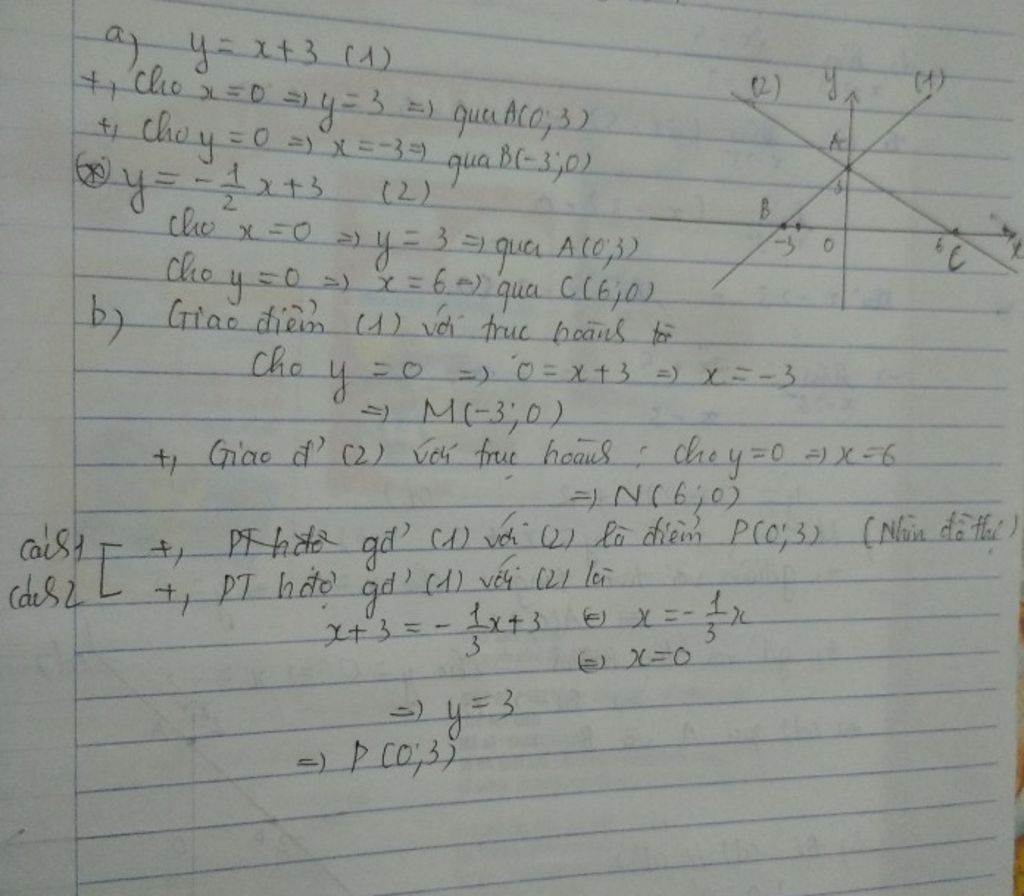 a) y = x + 3 (1)
+, Cho x = 0 => y = 3 => qua A(0; 3)
+, Cho y = 0 => x = -3 => qua B(-3; 0)
(*) y = -1/2 x + 3 (2)
Cho x = 0 => y = 3 => qua A(0; 3)
Cho y = 0 => x = 6 => qua C(6; 0)
b) Giao điểm (1) với trục hoành là
Cho y = 0 => 0 = x + 3 => x = -3
=> M(-3; 0)
+, Giao đ' (2) với trục hoành : cho y = 0 => x = 6
=> N(6; 0)
cách 1 +, PT hđộ gđ' (1) với (2) là điểm P(0; 3) (Nhìn đồ thị)
cách 2 +, PT hđộ gđ' (1) với (2) là
x + 3 = -1/3 x + 3 <=> x = -1/3 x
<=> x = 0
=> y = 3
=> P(0; 3)
(2) y (1)
A
3
B
-3 0 6 x
C